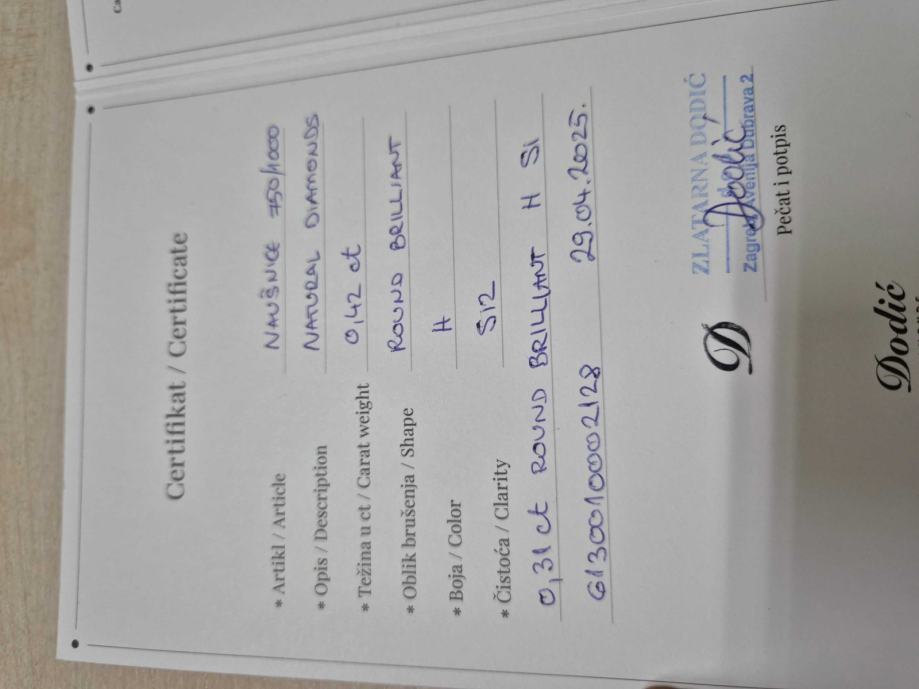 Certifikat / Certificate
* Artikl / Article NAUŠNICE 750/1000
* Opis / Description NATURAL DIAMONDS
* Težina u ct / Carat weight 0,42 ct
* Oblik brušenja / Shape ROUND BRILLIANT
* Boja / Color H
* Čistoća / Clarity Si2
0,31 ct ROUND BRILLIANT H Si
61300100002128 29.04.2025.
ZLATARNA DODIĆ
D Dodić
Zagreb, Avenija Dubrava 2
Pečat i potpis
Dodić